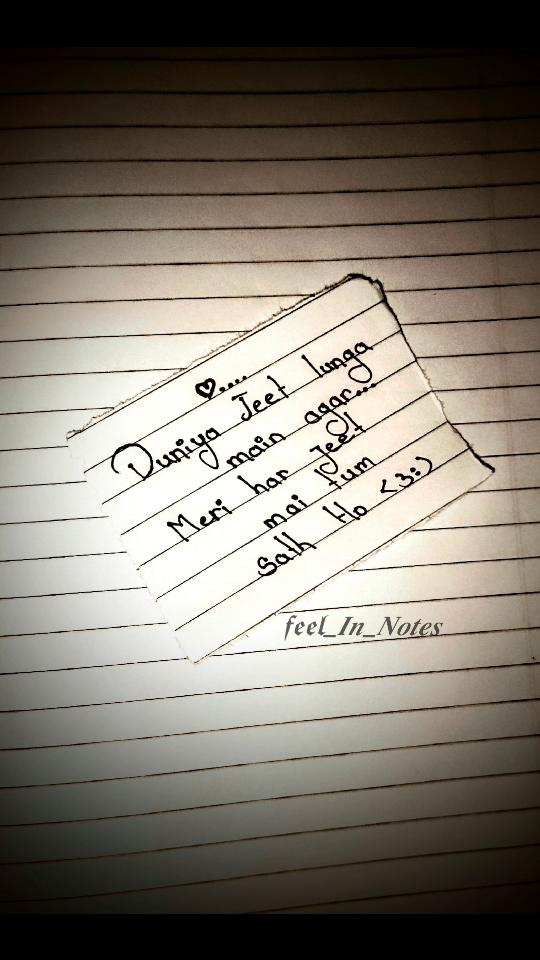 ♡....
Duniya Jeet lunga
main agar...
Meri har Jeet
mai tum
Sath Ho <3:)
feel_In_Notes